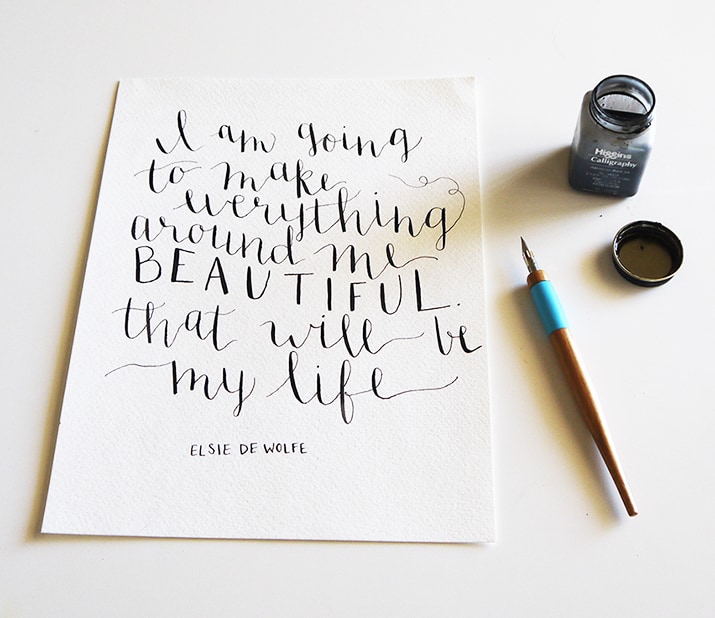 I am going
to make
everything
around me
BEAUTIFUL.
that will be
my life
ELSIE DE WOLFE
Higgins
Calligraphy